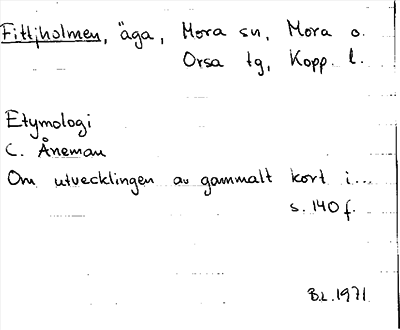 Fittjholmen, äga, Mora sn, Mora o.
Orsa tg, Kopp. l.
Etymologi
C. Åneman
Om utvecklingen av gammalt kort i...
s. 140 f.
B.L. 1971